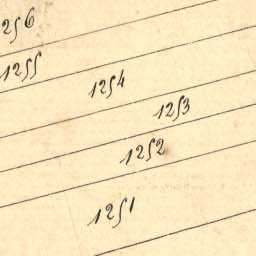 256
1255
1254
1253
1252
1251